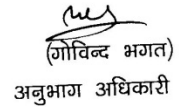 (गोविन्द भगत)
अनुभाग अधिकारी